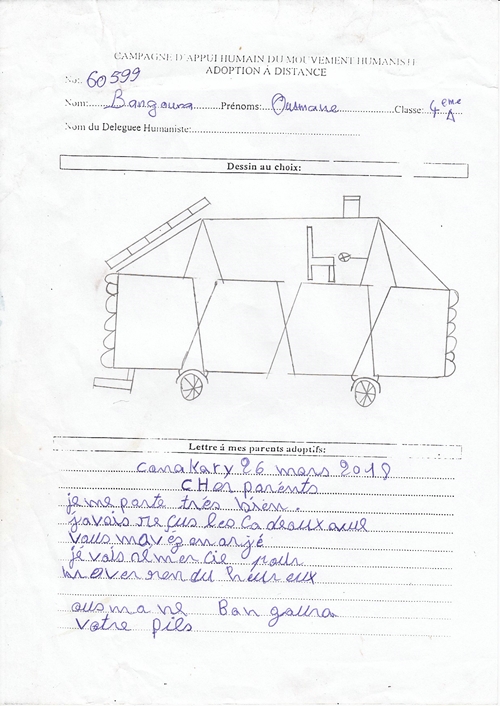 CAMPAGNE D'APPUI HUMAIN DU MOUVEMENT HUMANISTE
ADOPTION A DISTANCE
No: 60599
Nom: Bangoura Prénoms: Ousmane Classe: 4eme A
Nom du Deleguee Humaniste:
Dessin au choix:
Lettre à mes parents adoptifs:
Conakary 26 mars 2018
CHer parents
je me porte trés bien.
javais reçus les Cadeaux que
vous mavéz
jé vais remercie pour
rendu heureux
ousmane Bangoura
votre fils